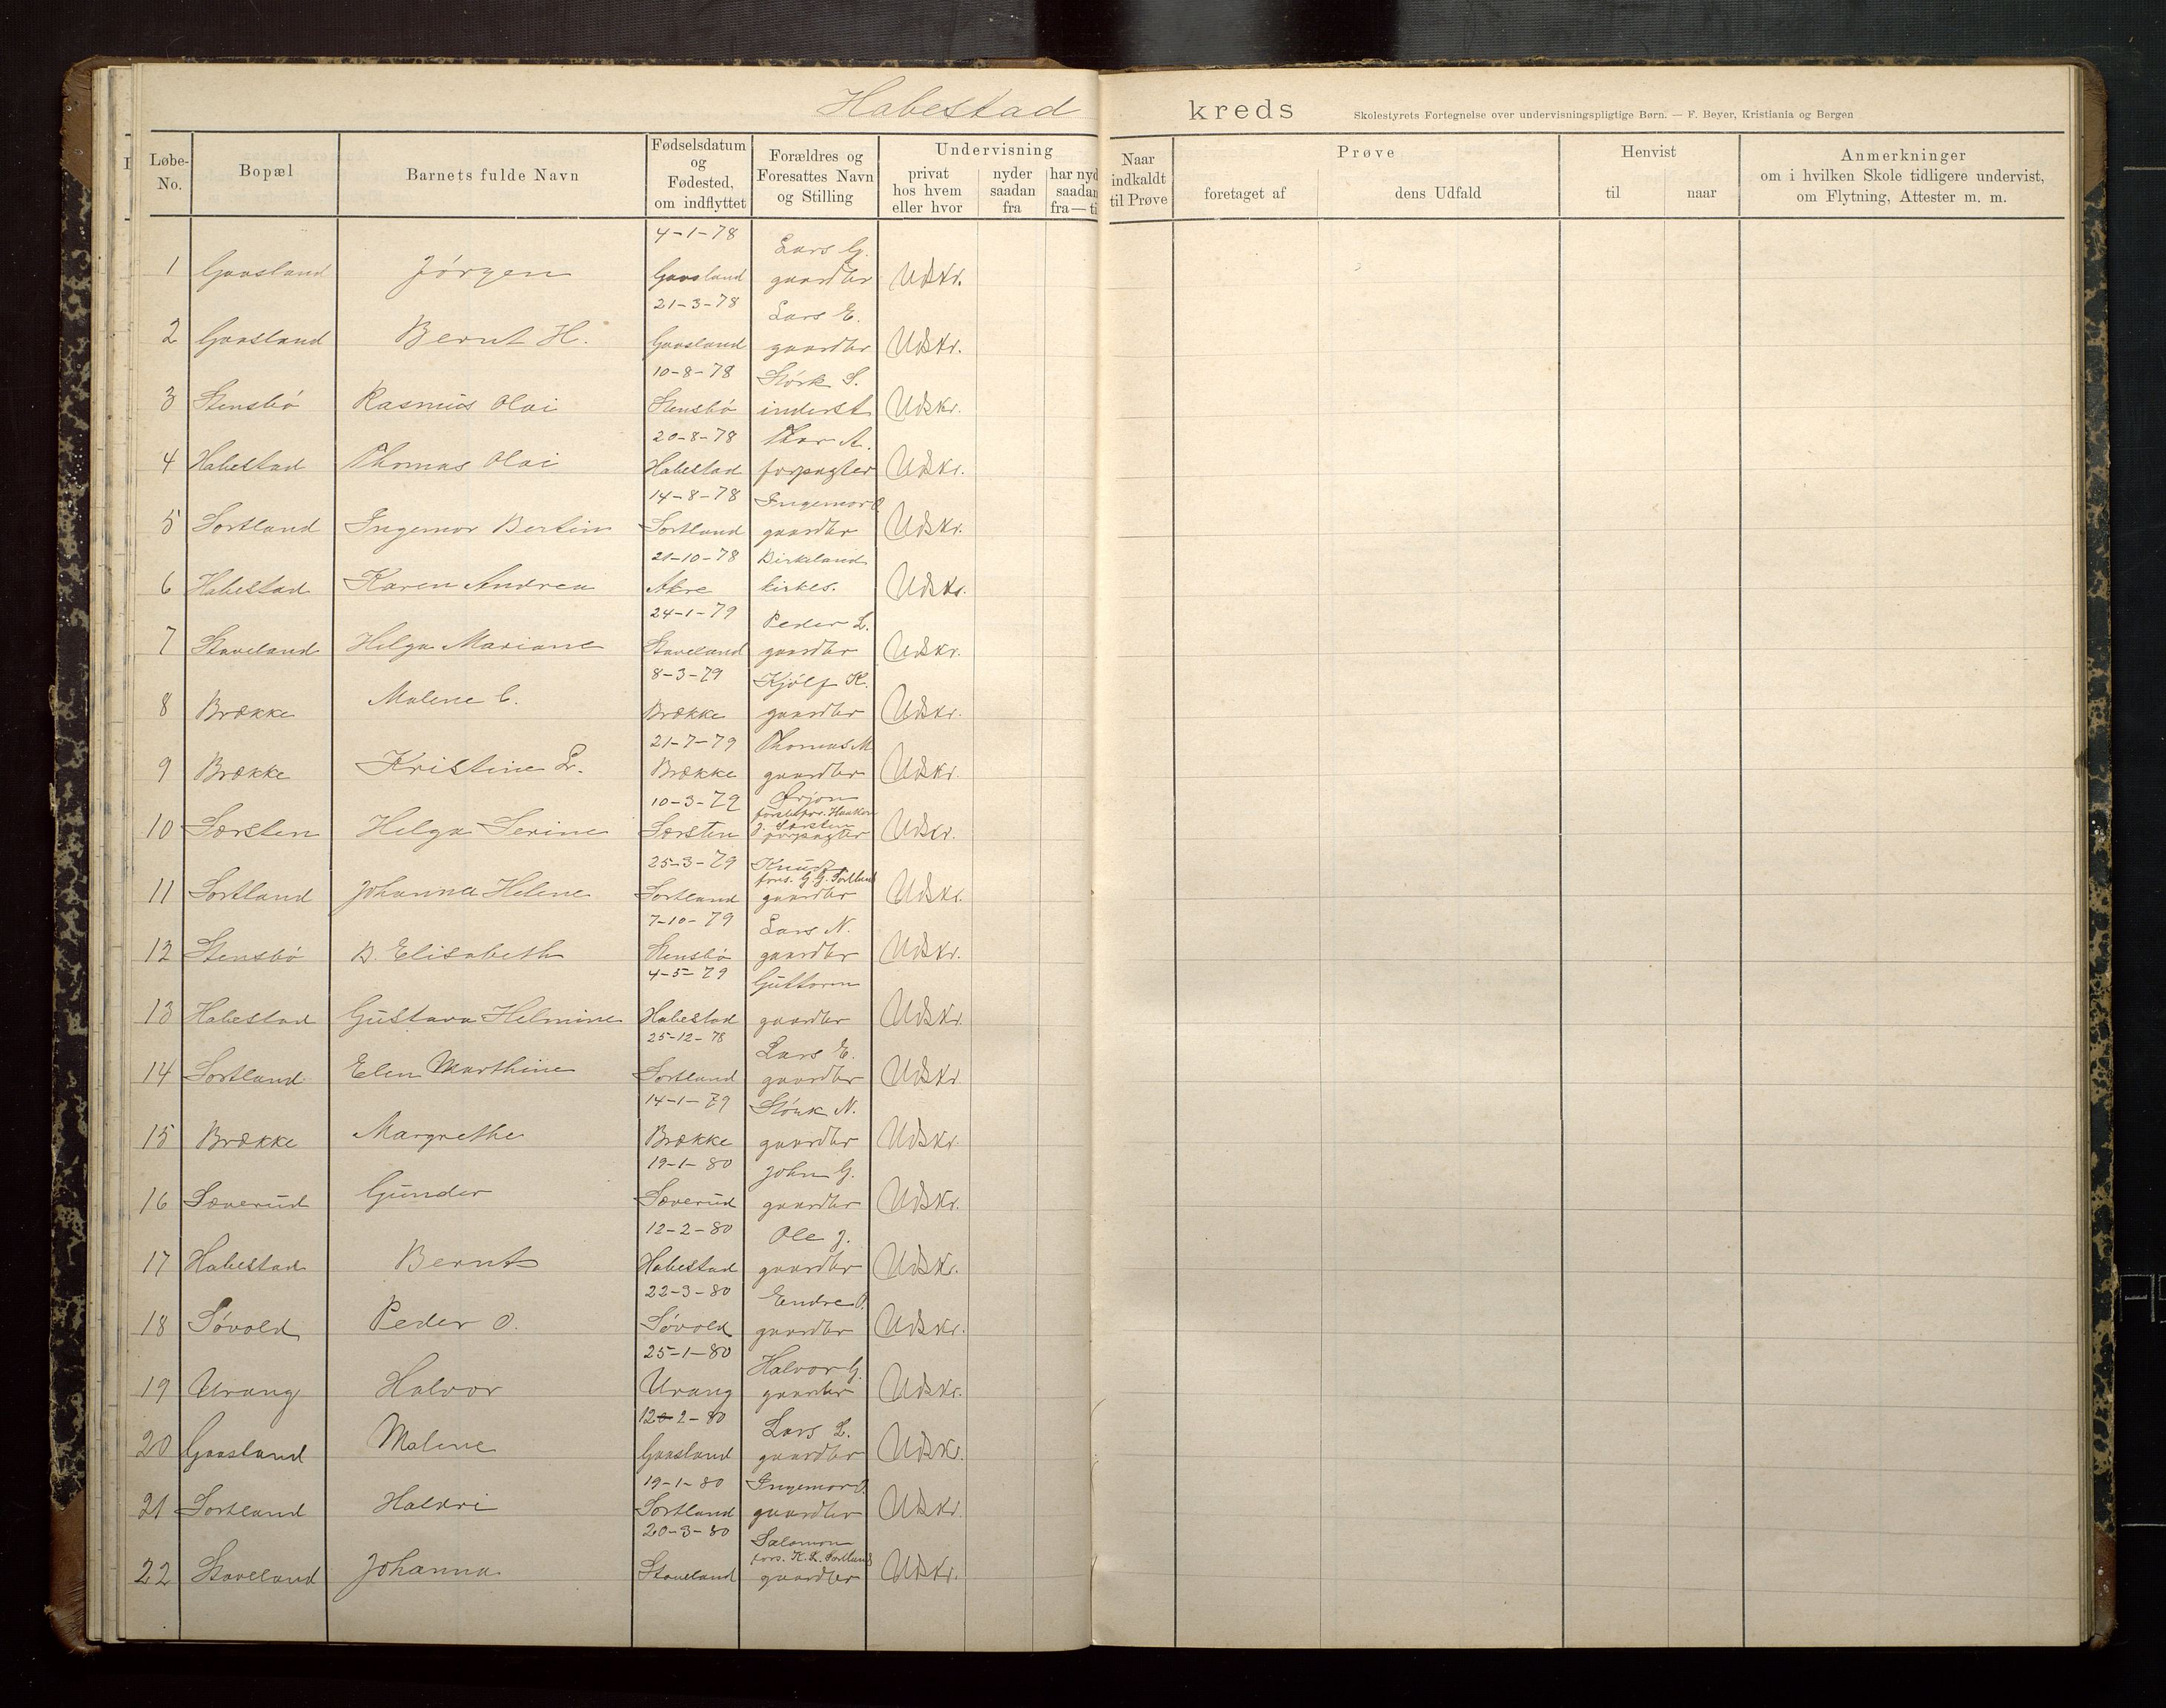 Habestad kreds
Skolestyrets Fortegnelse over undervisningspligtige Børn. — F. Beyer, Kristiania og Bergen
Løbe-No. Bopæl Barnets fulde Navn Fødselsdatum og Fødested, om indflyttet Forældres og Foresattes Navn og Stilling Undervisning privat hos hvem eller hvor nyder saadan fra har nyd saadan fra — ti
Naar indkaldt til Prøve Prøve foretaget af dens Udfald Henvist til naar Anmerkninger om i hvilken Skole tidligere undervist, om Flytning, Attester m. m.
4-1-78 Lars G.
1 Gaasland Jörgen Gaasland gaardbr Udskr.
21-3-78 Lars E.
2 Gaasland Bernt H. Gaasland gaardbr Udskr.
10-8-78 Störk S.
3 Stensbö Rasmus Olai Stensbö inderst Udskr.
20-8-78 Thor A.
4 Habestad Thomas Olai Habestad forpagter Udskr.
14-8-78 Ingemor O.
5 Sortland Ingemor Bertin Sortland gaardbr Udskr.
21-10-78 Birkeland
6 Habestad Karen Andrea Akre kirkes. Udskr.
24-1-79 Peder L.
7 Staveland Helga Mariane Staveland gaardbr Udskr.
8-3-79 Kjölf K.
8 Brække Malene C. Brække gaardbr Udskr.
21-7-79 Thomas M
9 Brække Kristine L. Brække gaardbr Udskr.
10-3-79 Ørjon
10 Særsten Helga Serine Særsten J. Særsten forpagter Udskr.
25-3-79 Knud
fors. G. G. Sortland
11 Sortland Johanna Helene Sortland gaardbr Udskr.
7-10-79 Lars N.
12 Stensbö B. Elisabeth Stensbö gaardbr Udskr.
4-5-79 Guttorm
13 Habestad Gustava Helmine Habestad gaardbr Udskr.
25-12-78 Lars E.
14 Sortland Elen Marthine Sortland gaardbr Udskr.
14-1-79 Störk N.
15 Brække Margrethe Brække gaardbr Udskr.
19-1-80 John G.
16 Sæverud Gunder Sæverud gaardbr Udskr.
12-2-80 Ole J.
17 Habestad Bernt Habestad gaardbr Udskr.
22-3-80 Endre O.
18 Sövold Peder O. Sövold gaardbr Udskr.
25-1-80 Halvor G.
19 Urang Halvor Urang gaardbr Udskr.
12-2-80 Lars L.
20 Gaasland Malene Gaasland gaardbr Udskr.
19-1-80 Ingemor O.
21 Sortland Haldri Sortland gaardbr Udskr.
20-3-80 Salomon
fors. K. L. Sortland
22 Staveland Johanna Staveland gaardbr Udskr.